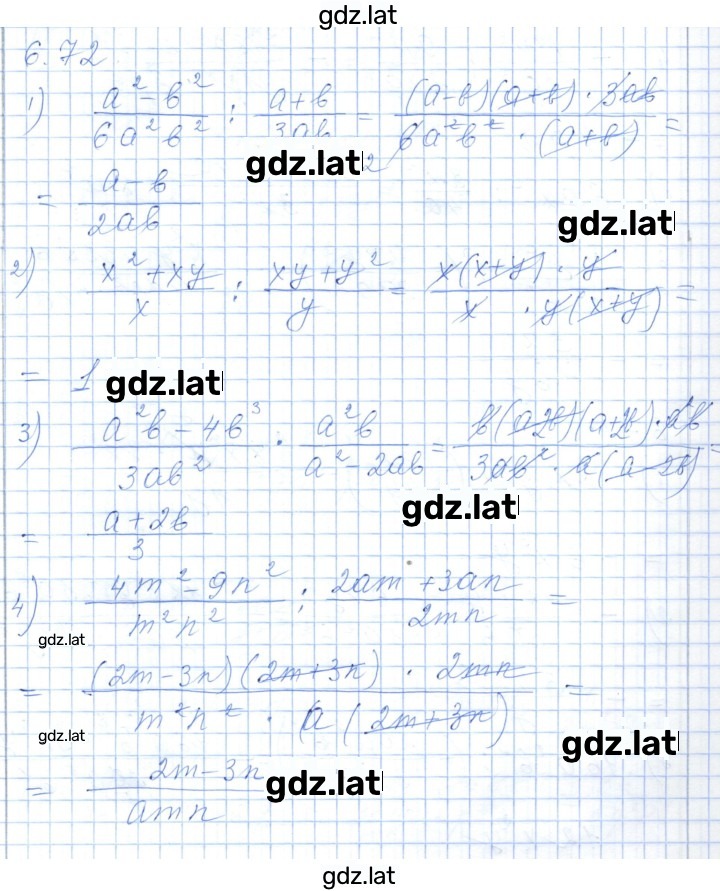 gdz.lat
6.72
1) (a² - в²)/(6a²в²) : (a+в)/(3aв) = ((a-в)(a+в) · 3aв)/(6a²в² · (a+в)) =
gdz.lat 2
= (a-в)/(2aв)
gdz.lat
2) (x² + xy)/x : (xy + y²)/y = (x(x+y) · y)/(x · y(x+y)) =
= 1 gdz.lat
3) (a²в - 4в³)/(3aв²) · (a²в)/(a² - 2aв) = (в(a-2в)(a+2в) · a²в)/(3aв² · a(a-2в)) =
gdz.lat
= (a+2в)/3
4) (4m² - 9n²)/(m²n²) : (2am + 3an)/(2mn) =
gdz.lat
= ((2m-3n)(2m+3n) · 2mn)/(m²n² · a(2m+3n)) =
gdz.lat
gdz.lat
= (2m-3n)/(amn) gdz.lat
gdz.lat